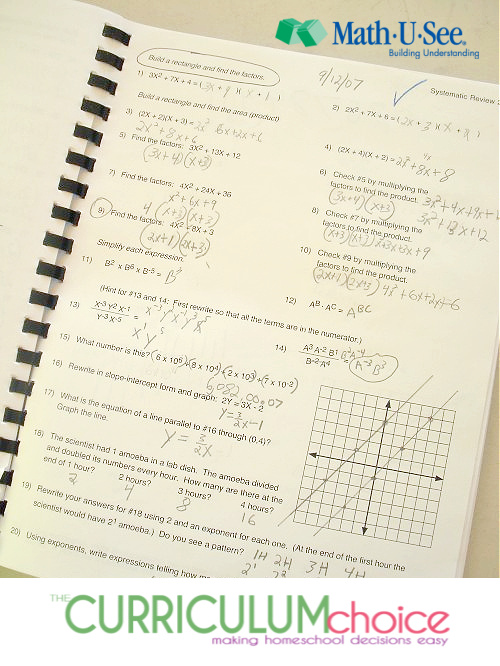 Math·U·See®
Building Understanding
Build a rectangle and find the factors.
9/12/07
Systematic Review
1) 3X² + 7X + 4 = (3x + 4)(x + 1)
2) 2X² + 7X + 6 = (2x + 3)(x + 2)
Build a rectangle and find the area (product)
3) (2X + 2)(X + 3) = 2x² 6x+2x+6
2x² + 8x + 6
4) (2X + 4)(X + 2) = 2x² + 8x + 8
4x
5) Find the factors: 3X² + 13X + 12
(3x+4)(x+3)
6) Check #5 by multiplying the
factors to find the product.
(3x+4)(x+3)
7) Find the factors: 4X² + 24X + 36
x² + 6x + 9
4 (x+3)(x+3)
8) Check #7 by multiplying the
factors to find the product.
(x+3)(x+3)
9) Find the factors: 4X² + 8X + 3
(2x+1)(2x+3)
10) Check #9 by multiplying the
factors to find the product.
(2x+1)(2x+3)
Simplify each expression.
11) B² x B⁶ x B⁻⁵ = B³
12) Aᴮ · Aᶜ = Aᴮᶜ
(Hint for #13 and 14: First rewrite so that all the terms are in the numerator.)
13) X⁻³ Y² X⁻¹
Y⁻³ X⁻⁵
x¹ y⁵
14) A³ A⁻² B¹
B⁻² A⁴
A⁻³ B³
15) What number is this? (6 x 10⁵) + (8 x 10⁴) + (2 x 10³) + (7 x 10⁻²)
6,082,00.07
16) Rewrite in slope-intercept form and graph: 2Y = 3X - 2
Y = 3/2x - 1
17) What is the equation of a line parallel to #16 through (0,4)?
Graph the line.
Y = 3/2x
18) The scientist had 1 amoeba in a lab dish. The amoeba divided
and doubled its numbers every hour. How many are there at the
end of 1 hour? 2 hours? 3 hours? 4 hours?
2 4 8 16
19) Rewrite your answers for #18 using 2 and an exponent for each one. (At the end of the first hour the
scientist would have 2¹ amoeba.) Do you see a pattern?
1H 2H 3H 4H
2¹ 2²
20) Using exponents, write expressions telling how
THE
CURRICULUMchoice
making homeschool decisions easy